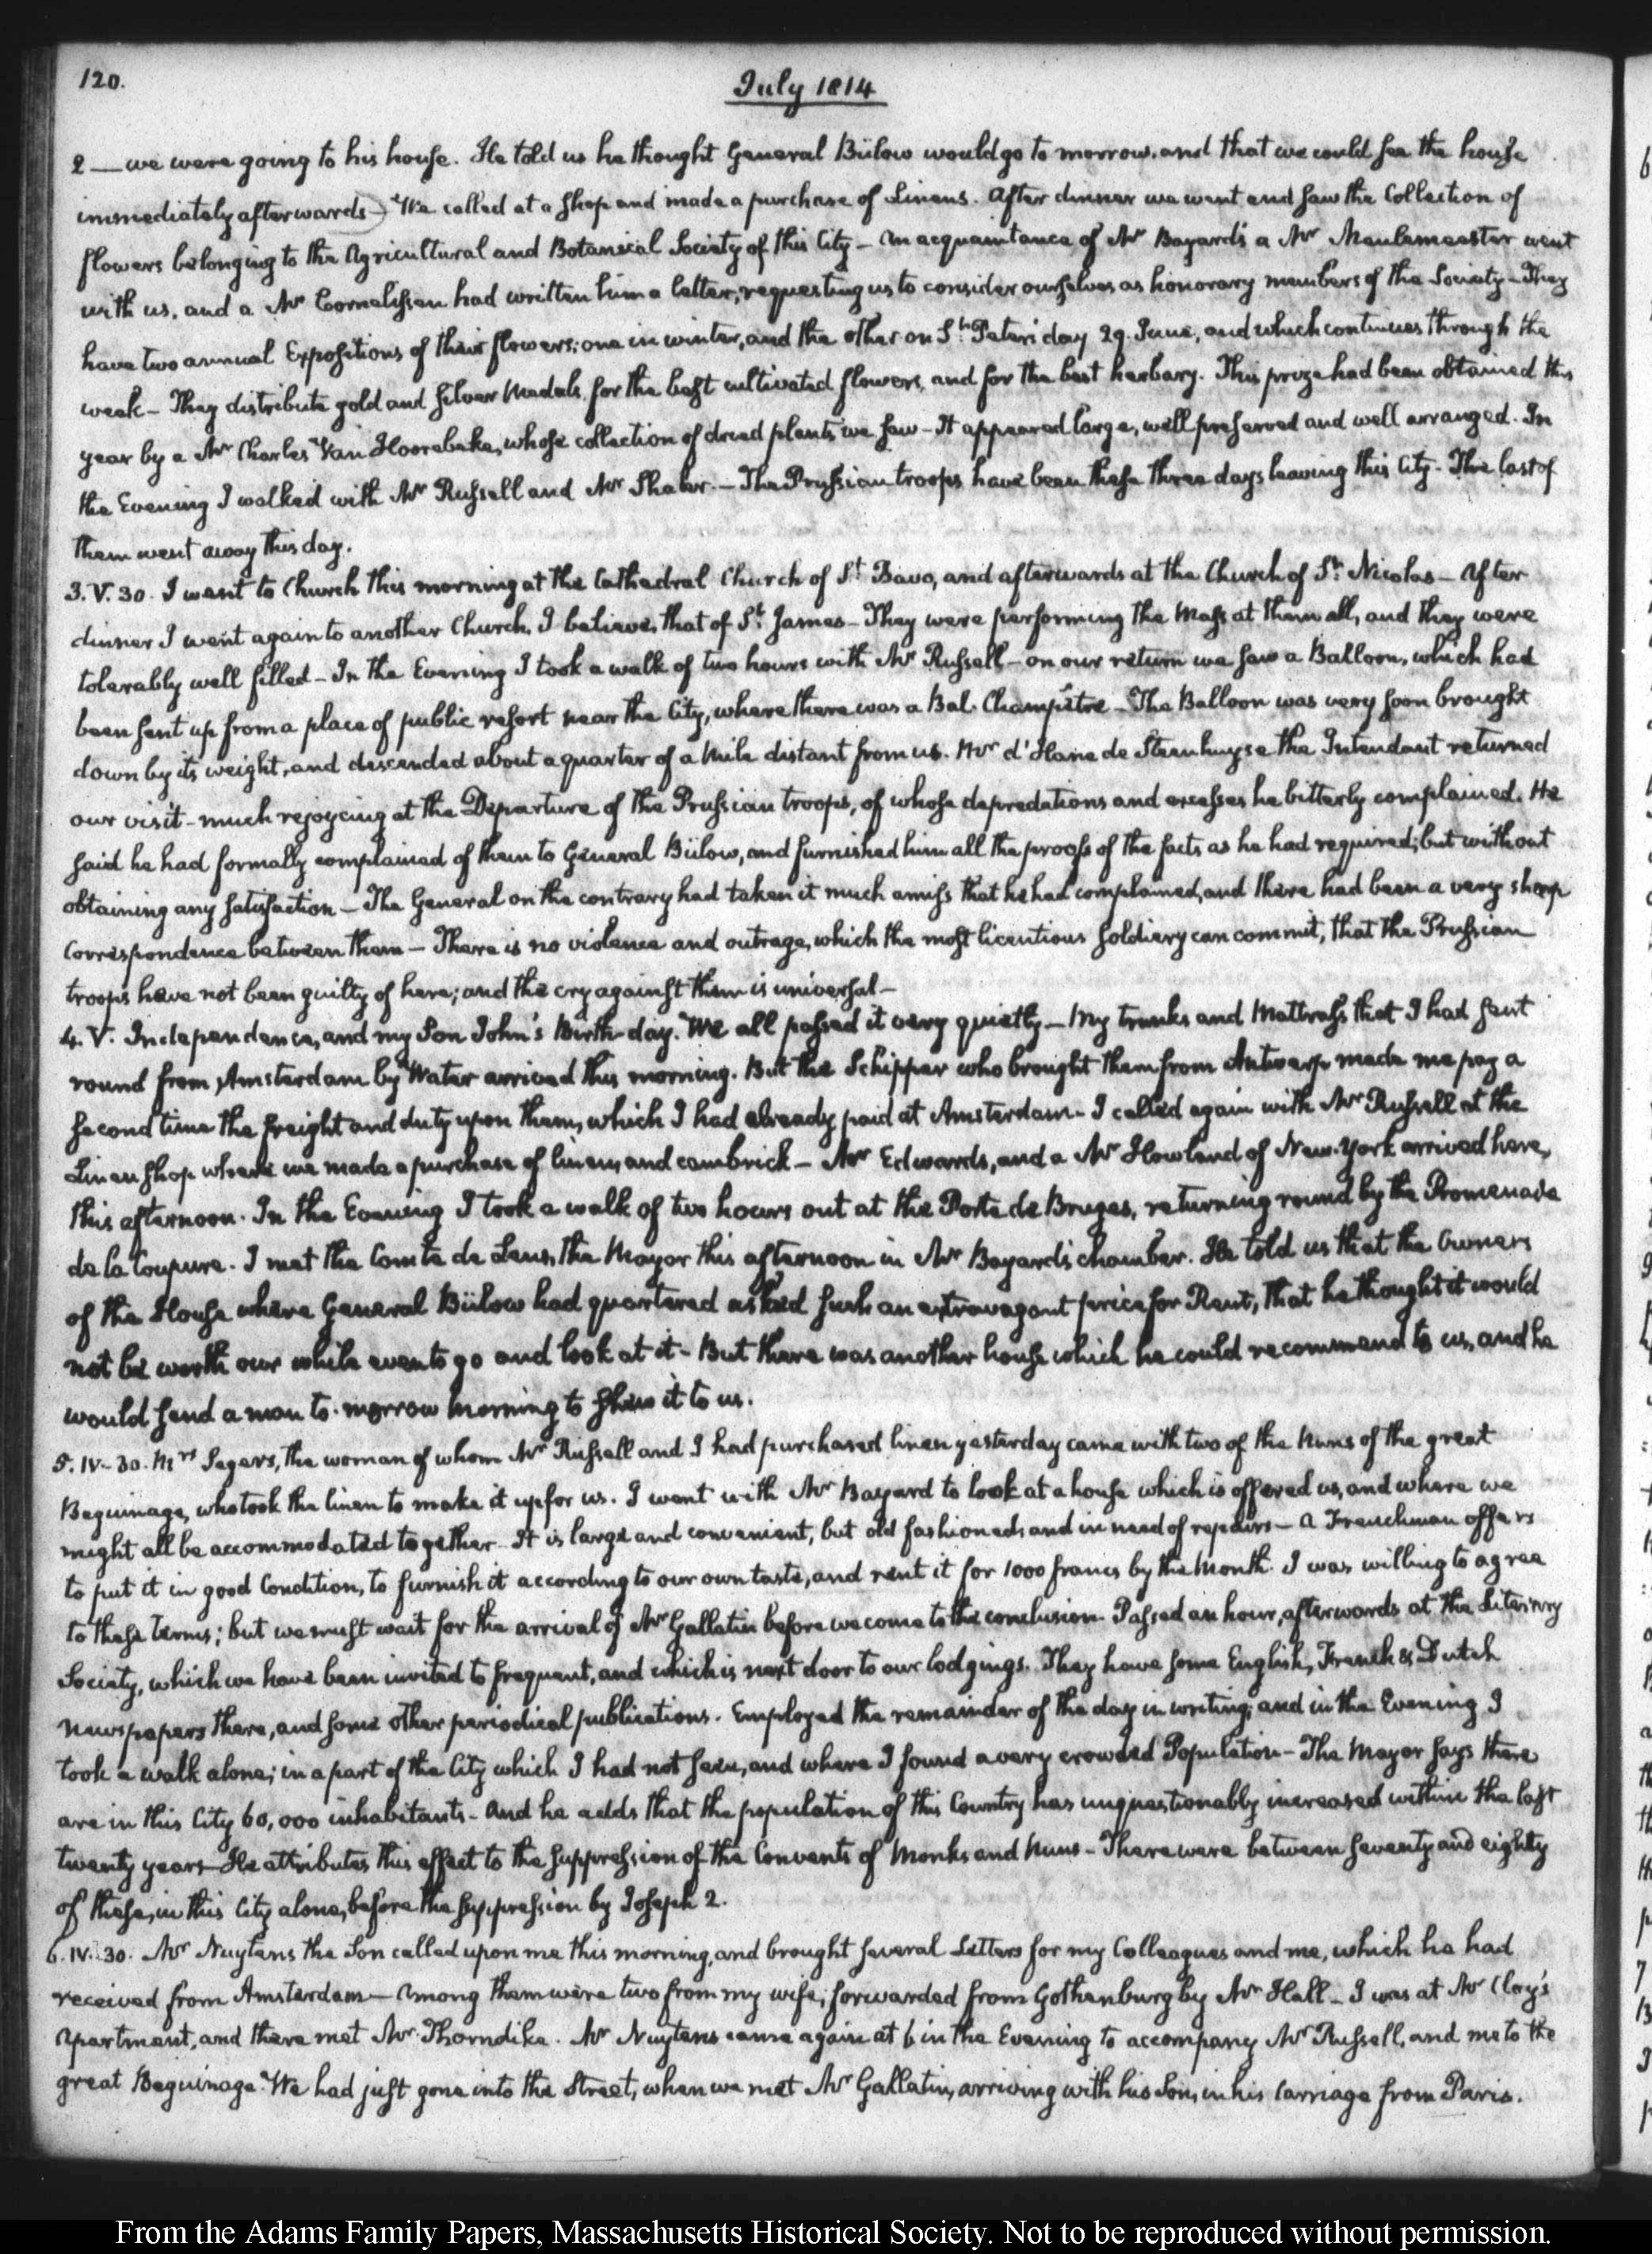 120.
July 1814
2 — we were going to his house. He told us he thought General Bülow would go to morrow, and that we could see the house
immediately afterwards — We called at a shop and made a purchase of Linens. After dinner we went and saw the Collection of
flowers belonging to the Agricultural and Botanical Society of this City — An acquaintance of Mr Bayard's a Mr Meulemeester went
with us, and a Mr Cornelissen had written him a letter, requesting us to consider ourselves as honorary members of the Society — They
have two annual Expositions of their flowers; one in winter, and the other on St. Peter's day 29. June, and which continues through the
week — They distribute gold and silver Medals, for the best cultivated flowers, and for the best herbary. This prize had been obtained this
year by a Mr Charles Van Hoorebeke, whose collection of dried plants we saw — It appeared large, well preserved and well arranged. In
the Evening I walked with Mr Russell and Mr Shaler. — The Prussian troops have been these three days leaving this City. The last of
them went away this day.
3. V. 30. I went to Church this morning at the Cathedral Church of St Bavo, and afterwards at the Church of St. Nicolas — After
dinner I went again to another Church, I believe, that of St. James — They were performing the Mass at them all, and they were
tolerably well filled — In the Evening I took a walk of two hours with Mr Russell — on our return we saw a Balloon, which had
been sent up from a place of public resort near the City, where there was a Bal Champêtre — The Balloon was very soon brought
down by its weight, and descended about a quarter of a Mile distant from us. Mr d'Hane de Steenhuyse the Intendant returned
our visit — much rejoycing at the Departure of the Prussian troops, of whose depredations and excesses he bitterly complained. He
said he had formally complained of them to General Bülow, and furnished him all the proofs of the facts as he had required; but without
obtaining any satisfaction — The General on the contrary had taken it much amiss that he had complained, and there had been a very sharp
Correspondence between them — There is no violence and outrage, which the most licentious soldiery can commit, that the Prussian
troops have not been guilty of here; and the cry against them is universal —
4. V. Independence, and my Son John's Birth-day. We all passed it very quietly — My trunks and Mattress that I had sent
round from Amsterdam by Water arrived this morning. But the Schipper who brought them from Antwerp made me pay a
second time the freight and duty upon them, which I had already paid at Amsterdam — I called again with Mr Russell at the
Linen shop where we made a purchase of linens and cambrick — Mr Edwards, and a Mr Howland of New-York arrived here,
this afternoon. In the Evening I took a walk of two hours out at the Porte de Bruges, returning round by the Promenade
de la Coupure. I met the Comte de Lens, the Mayor this afternoon in Mr Bayard's chamber. He told us that the Owners
of the House where General Bülow had quartered asked such an extravagant price for Rent, that he thought it would
not be worth our while even to go and look at it — But there was another house which he could recommend to us, and he
would send a man to-morrow morning to shew it to us.
5. IV-30. Mrs Segers, the woman of whom Mr Russell and I had purchased linen yesterday came with two of the Nuns of the great
Beguinage, who took the linen to make it up for us. I went with Mr Bayard to look at a house which is offered us, and where we
might all be accommodated together — It is large and convenient, but old fashioned, and in need of repairs — A Frenchman offers
to put it in good Condition, to furnish it according to our own taste, and rent it for 1000 francs by the Month. I was willing to agree
to these terms; but we must wait for the arrival of Mr Gallatin before we come to the conclusion. Passed an hour, afterwards at the Literary
Society, which we have been invited to frequent, and which is next door to our lodgings. They have some English, French & Dutch
Newspapers there, and some other periodical publications. Employed the remainder of the day in writing; and in the Evening I
took a walk alone; in a part of the City which I had not seen, and where I found a very crowded Population — The Mayor says there
are in this City 60,000 inhabitants — And he adds that the population of this Country has unquestionably increased within the last
twenty years — He attributes this effect to the suppression of the Convents of Monks and Nuns — There were between seventy and eighty
of these, in this City alone, before the suppression by Joseph 2.
6. IV. 30. Mr Nuytens the Son called upon me this morning, and brought several Letters for my Colleagues and me, which he had
received from Amsterdam — Among them were two from my wife, forwarded from Gothenburg by Mr Hall — I was at Mr Clay's
apartment, and there met Mr Thorndike. Mr Nuytens came again at 6 in the Evening to accompany Mr Russell, and me to the
great Beguinage. We had just gone into the Street, when we met Mr Gallatin, arriving with his Son, in his Carriage from Paris.
From the Adams Family Papers, Massachusetts Historical Society. Not to be reproduced without permission.